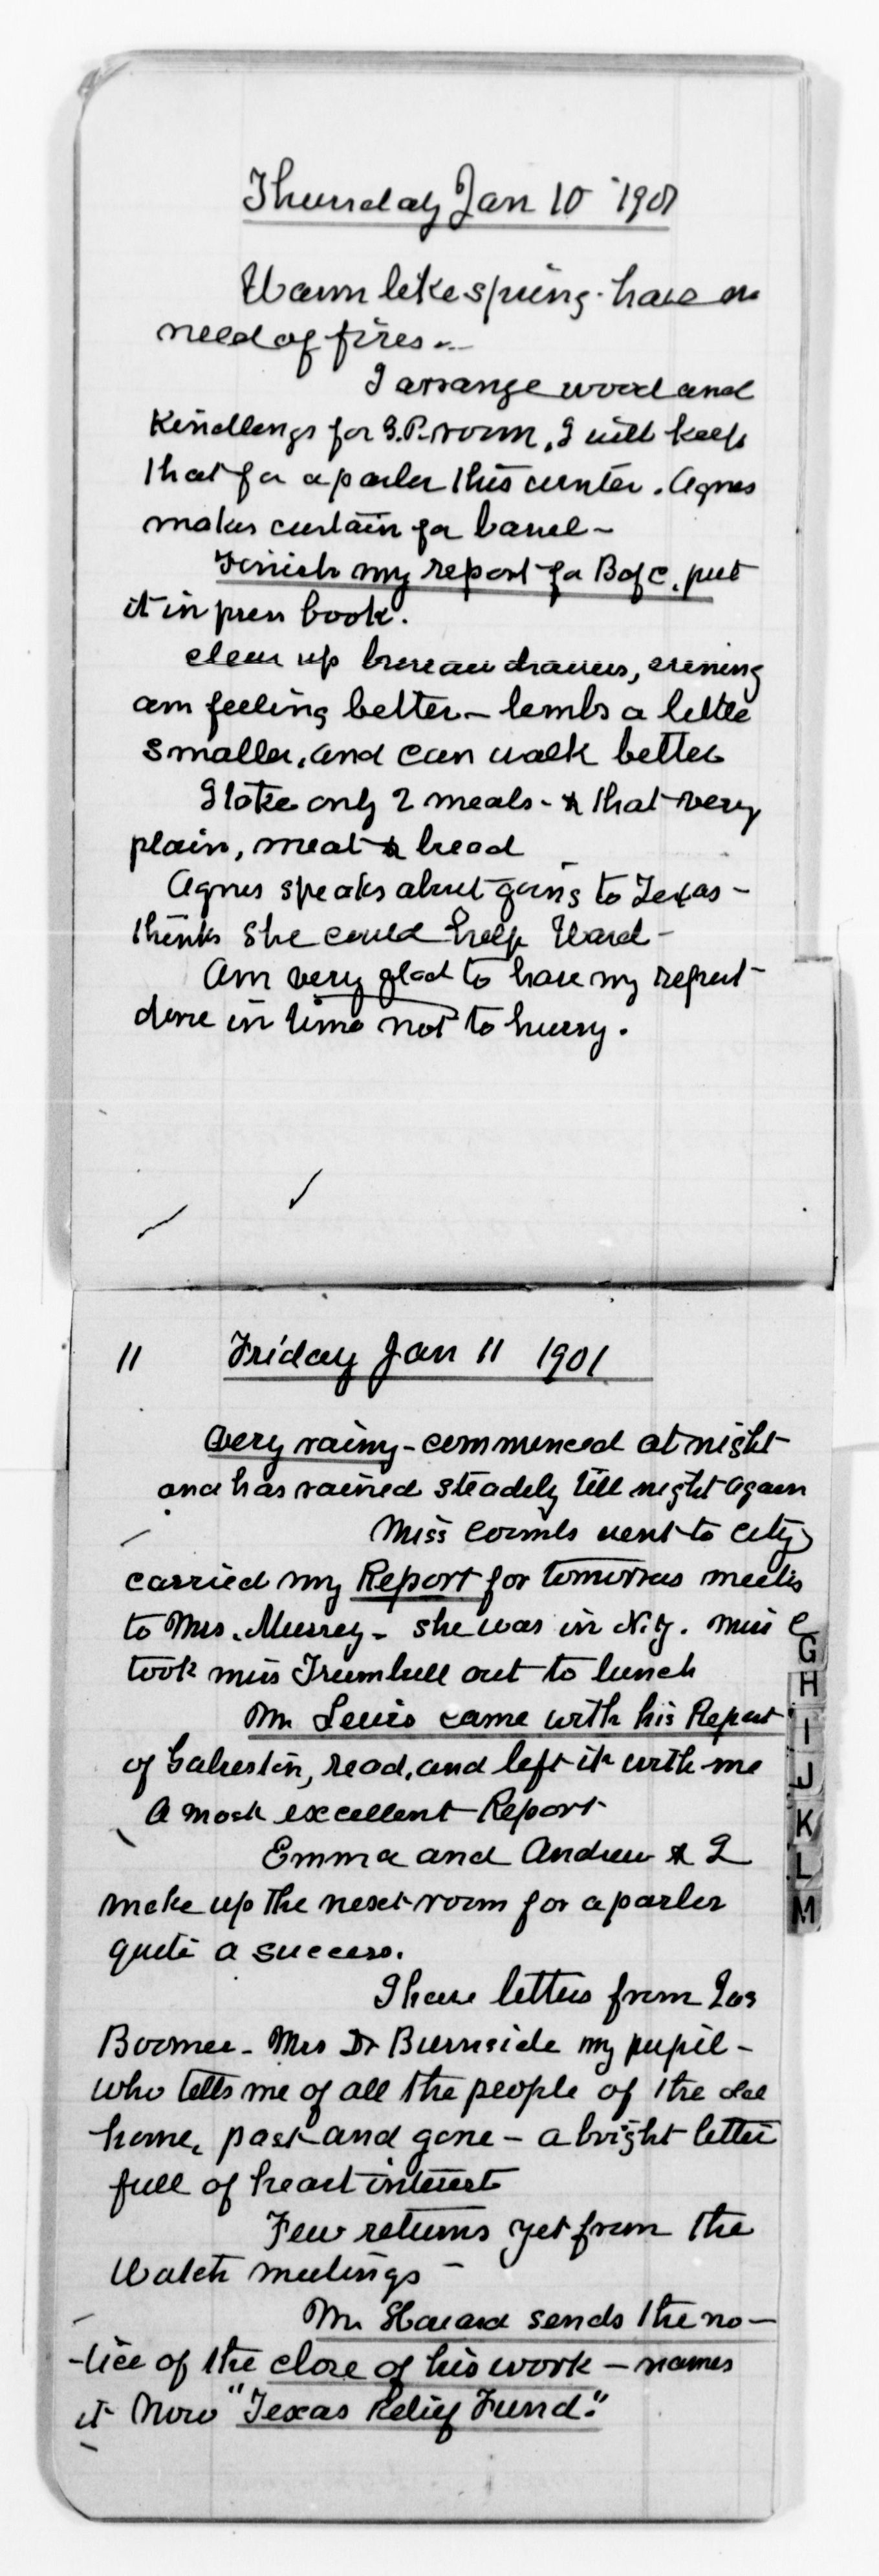 Thursday Jan 10 1901
Warm like spring - have no
need of fires -
I arrange wood and
Kindlings for G.P. room, I will keep
that for a parlor this winter. Agnes
makes curtain for barrel -
Finish my report for B of C, put
it in press book.
clear up bureau drawers, evening
am feeling better - lembs a little
smaller, and can walk better
I take only 2 meals - & that very
plain, meat & bread
Agnes speaks about going to Texas -
thinks she could help Ward -
Am very glad to have my report
done in time not to hurry.
11 Friday Jan 11 1901
Very rainy - commenced at night
and has rained steadily till night again
Miss Coombs went to city
carried my Report for tomorrows meetis
to Mrs. Mussey - she was in N.Y. Miss C
took miss Trumbull out to lunch
Mr Lewis came with his Report
of Galveston, read, and left it with me
A most excellent Report
Emma and Andrew & I
make up the next room for a parlor
quite a success.
I have letters from
Boomer - Mrs Dr Burnside my pupil -
who tells me of all the people of the old
home, past and gone - a bright letter
full of heart interest
Few returns yet from the
Watch meetings -
Mr Howard sends the no-
-tice of the close of his work - names
it Now "Texas Relief Fund."
G
H
I
J
K
L
M